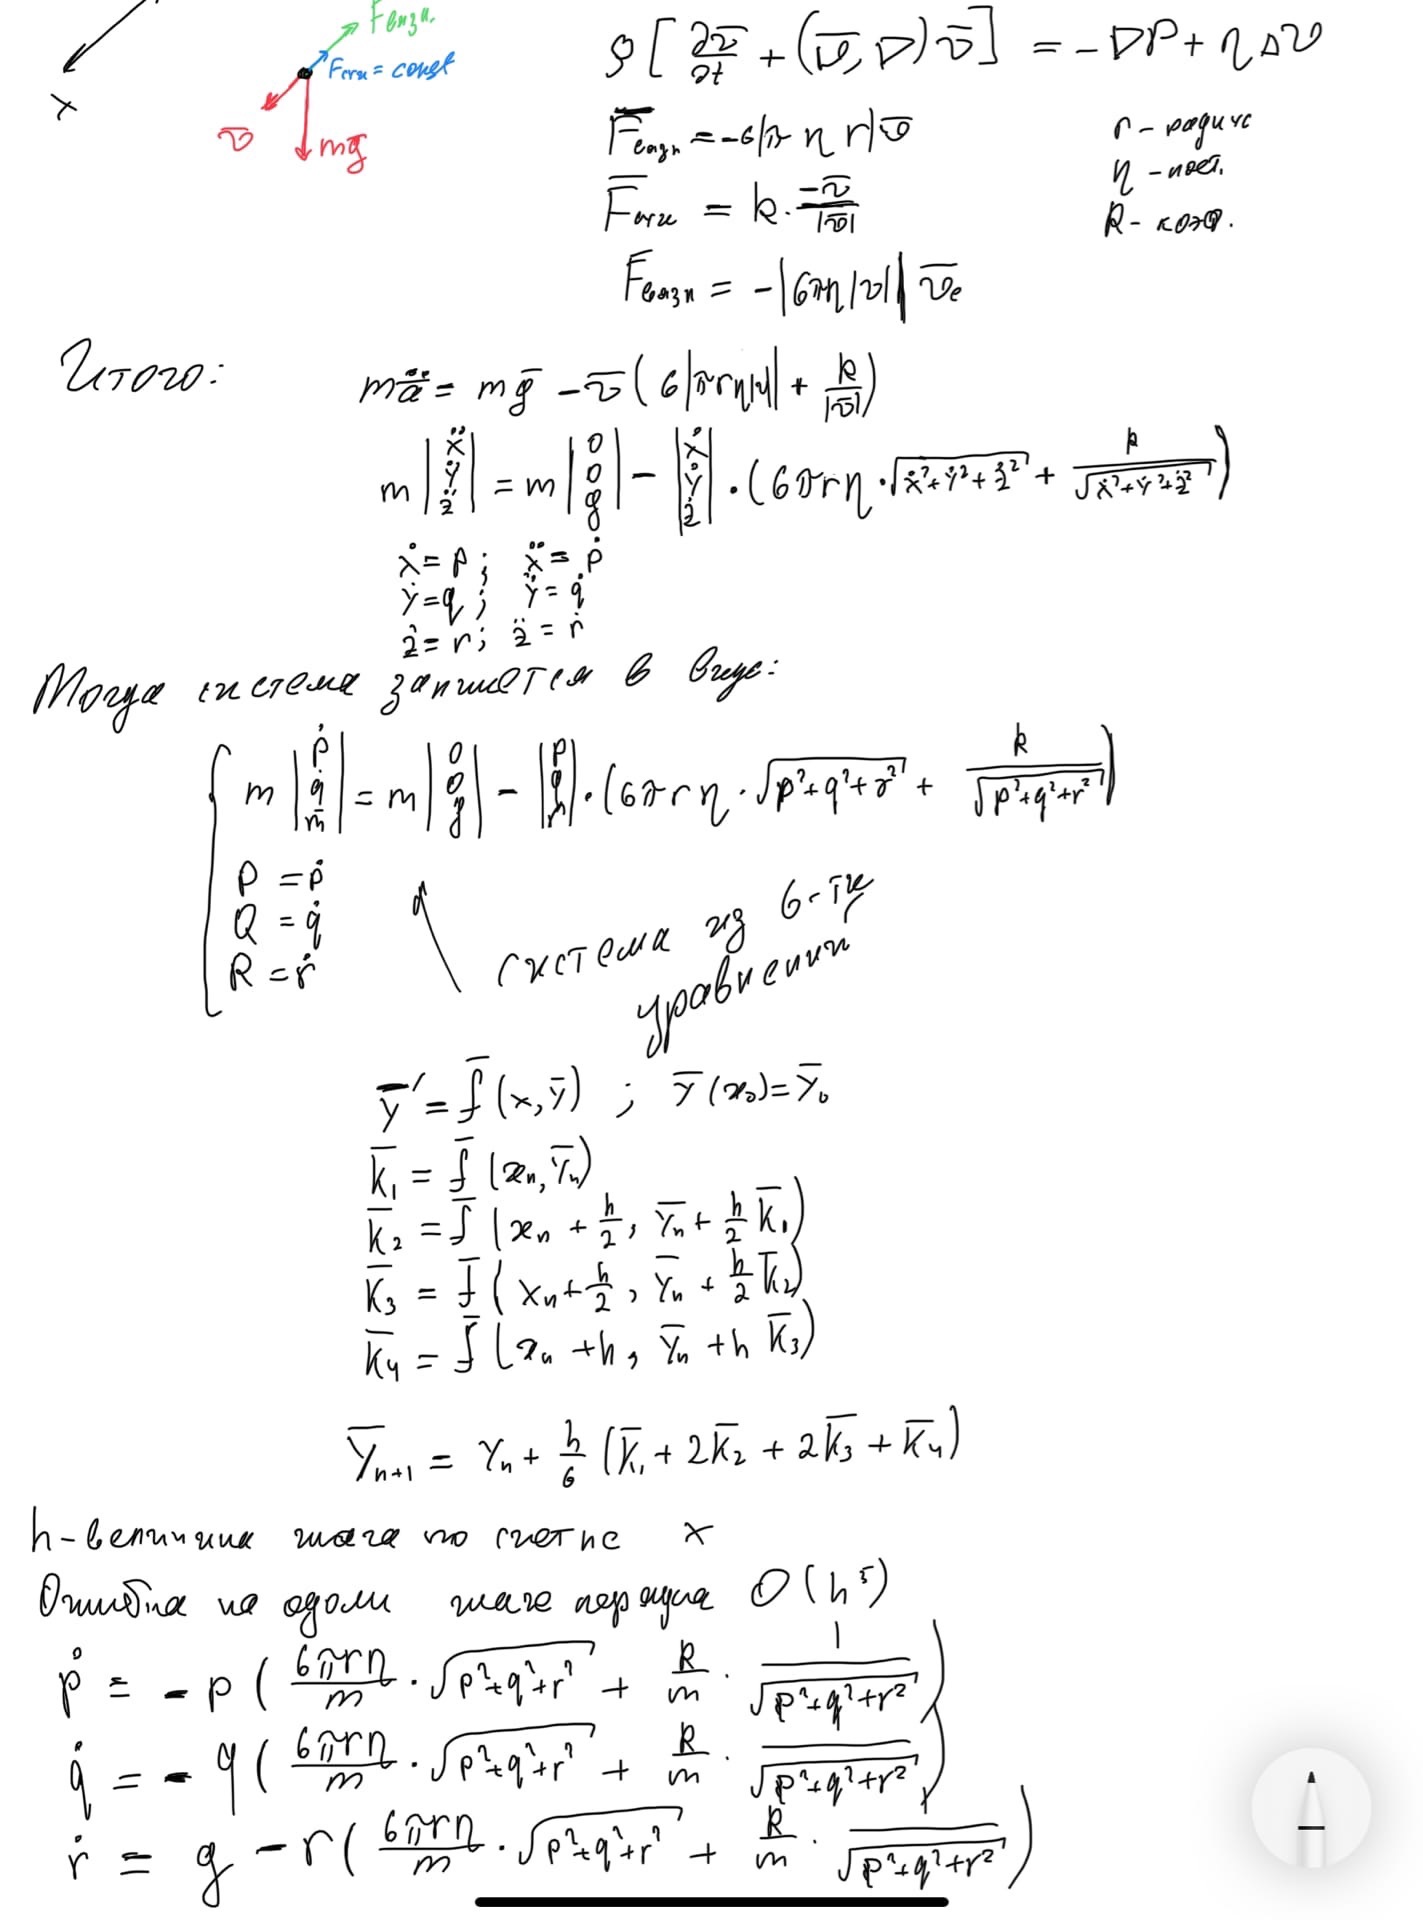 Fвязк.
Fсти = const
x
v̅
mg̅
ρ[∂v̅/∂t + (v̅,∇)v̅] = -∇P + ηΔv
F̅вязк = -6|π η r|v̅
r - радиус
η - пост.
F̅сти = k·-v̅/|v̅|
k - коэф.
Fвязк = -|6πη|v|| v̅e
Итого:
ma̅ = mg̅ - v̅(6|πrη|v|| + k/|v̅|)
m|ẍ ÿ z̈| = m|0 0 g| - |ẋ ẏ ż|·(6πrη·√(ẋ²+ẏ²+ż²) + k/√(ẋ²+ẏ²+ż²))
ẋ = p; ẍ = ṗ
ẏ = q; ÿ = q̇
ż = r; z̈ = ṙ
Тогда система запишется в виде:
m|ṗ q̇ ṁ| = m|0 0 g| - |p q r|·(6πrη·√(p²+q²+r²) + k/√(p²+q²+r²))
P = ṗ
Q = q̇
R = ṙ
система из 6-ти
уравнений
y̅' = f̅(x, y̅) ; y̅(x₀) = y̅₀
k̅₁ = f̅(xₙ, y̅ₙ)
k̅₂ = f̅(xₙ + h/2, y̅ₙ + h/2 k̅₁)
k̅₃ = f̅(xₙ + h/2, y̅ₙ + h/2 k̅₂)
k̅₄ = f̅(xₙ + h, y̅ₙ + h k̅₃)
y̅ₙ₊₁ = yₙ + h/6 (k̅₁ + 2k̅₂ + 2k̅₃ + k̅₄)
h - величина шага по сетке x
Ошибка на одом шаге порядка O(h⁵)
ṗ = -p(6πrη/m·√(p²+q²+r²) + k/m·1/√(p²+q²+r²))
q̇ = -q(6πrη/m·√(p²+q²+r²) + k/m·1/√(p²+q²+r²))
ṙ = g - r(6πrη/m·√(p²+q²+r²) + k/m·1/√(p²+q²+r²))